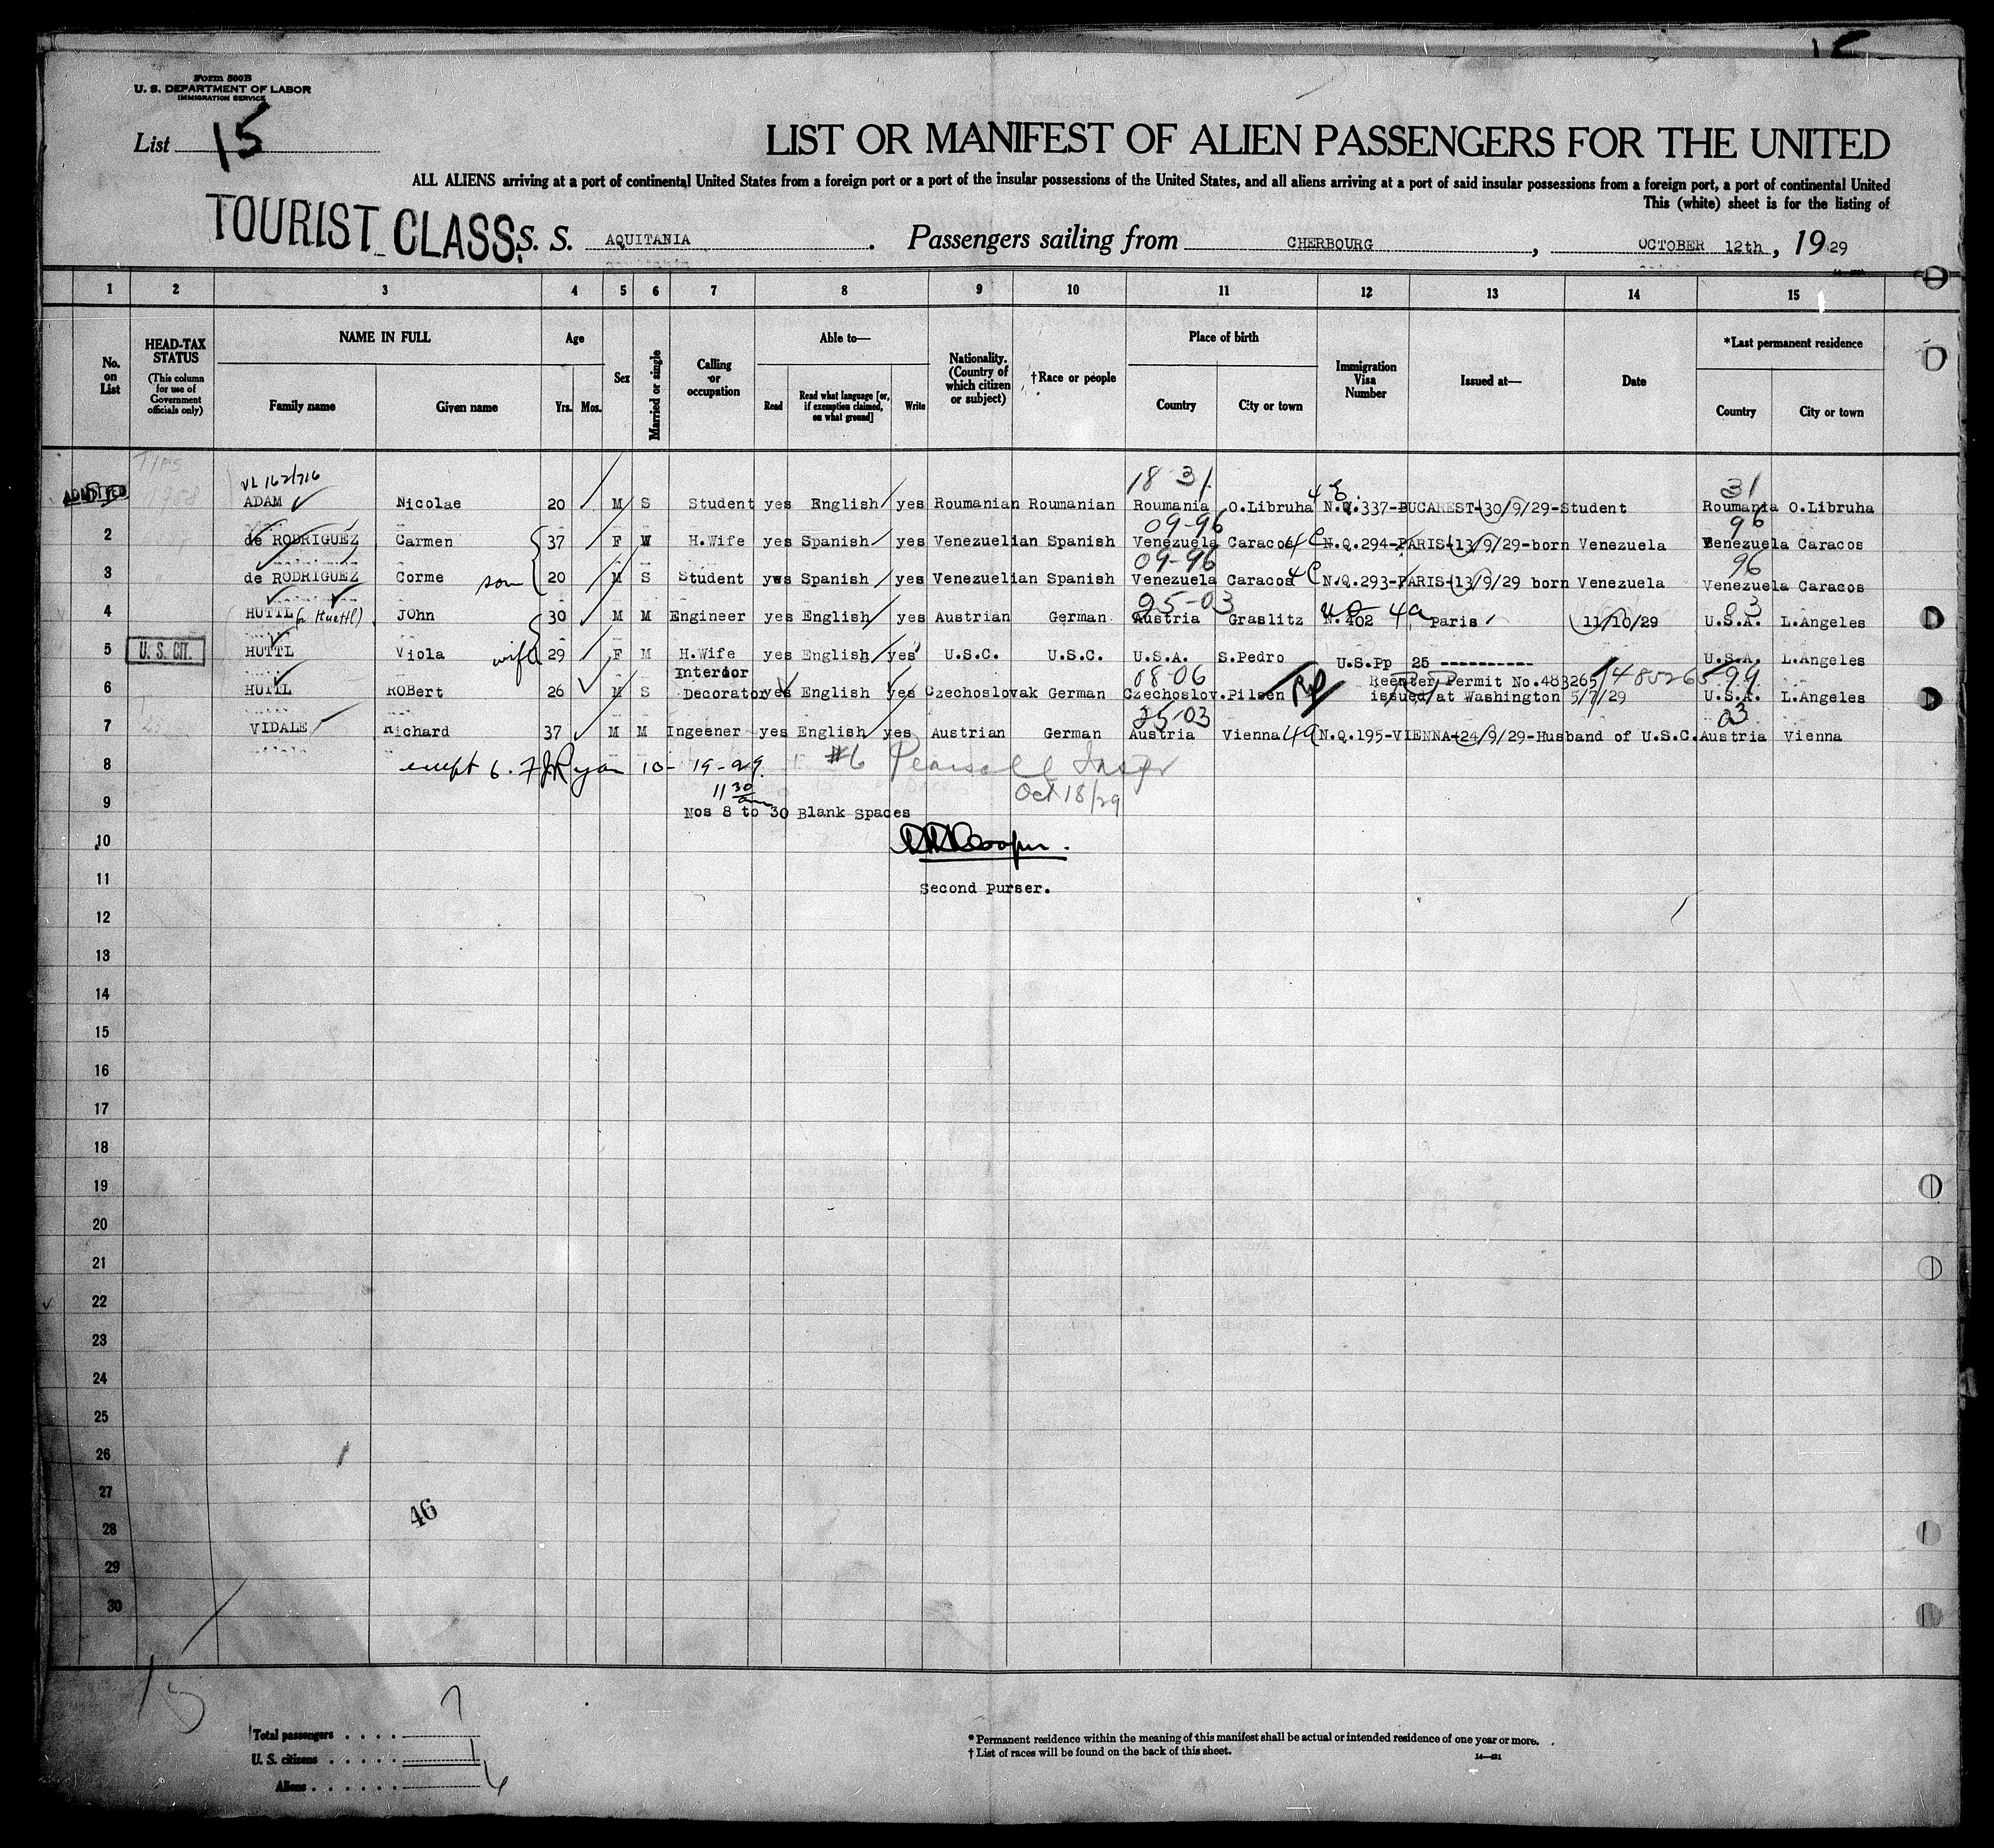 Form 500B
U. S. DEPARTMENT OF LABOR
IMMIGRATION SERVICE
List 15
LIST OR MANIFEST OF ALIEN PASSENGERS FOR THE UNITED
ALL ALIENS arriving at a port of continental United States from a foreign port or a port of the insular possessions of the United States, and all aliens arriving at a port of said insular possessions from a foreign port, a port of continental United
This (white) sheet is for the listing of
TOURIST CLASS. S. S. AQUITANIA . Passengers sailing from CHERBOURG , OCTOBER 12th , 19 29
1 2 3 4 5 6 7 8 9 10 11 12 13 14 15
No. on List
HEAD-TAX STATUS (This column for use of Government officials only)
NAME IN FULL
Family name Given name
Age
Yrs. Mos.
Sex
Married or single
Calling or occupation
Able to—
Read Read what language [or, if exemption claimed, on what ground] Write
Nationality. (Country of which citizen or subject)
†Race or people
Place of birth
Country City or town
Immigration Visa Number
Issued at—
Date
*Last permanent residence
Country City or town
VL 162/716 18 31 31
ADMITTED ADAM Nicolae 20 M S Student yes English yes Roumanian Roumanian Roumania O.Libruha N.Q.337-BUCAREST-30/9/29-Student Roumania O.Libruha
09-96 96
2 de RODRIGUEZ Carmen 37 F W H.Wife yes Spanish yes Venezuelian Spanish Venezuela Caracos N.Q.294-PARIS-13/9/29-born Venezuela Venezuela Caracos
09-96 96
3 de RODRIGUEZ Corme son 20 M S Student yws Spanish yes Venezuelian Spanish Venezuela Caracos N.Q.293-PARIS-13/9/29 born Venezuela Venezuela Caracos
25-03 4a 03
4 HUTTL (or Huettl) JOhn 30 M M Engineer yes English yes Austrian German Austria Graslitz N. 402 Paris 11/10/29 U.S.A. L.Angeles
5 U. S. CIT. HUTTL Viola wife 29 F M H.Wife yes English yes U.S.C. U.S.C. U.S.A. S.Pedro U.S.Pp 25 ---------- U.S.A. L.Angeles
Interior 08-06 Reenter Permit No.483265/485265 99
6 HUTTL RoBert 26 M S Decorator yes English yes Czechoslovak German Czechoslov.Pilsen RP issued at Washington 5/7/29 U.S.A. L.Angeles
25-03 03
7 VIDALE Richard 37 M M Ingeener yes English yes Austrian German Austria Vienna 4a N.Q.195-VIENNA-24/9/29-Husband of U.S.C. Austria Vienna
8 except 6. F J Ryan 10-19-29. #6 Pearsall Inspr
11 30 am Oct 18/29
9 Nos 8 to 30 Blank Spaces
10
11 Second Purser.
12
13
14
15
16
17
18
19
20
21
22
23
24
25
26
27
46
28
29
30
15
Total passengers . . . . 7
U. S. citizens . . . . . 1
Aliens . . . . . . 6
* Permanent residence within the meaning of this manifest shall be actual or intended residence of one year or more.
† List of races will be found on the back of this sheet.